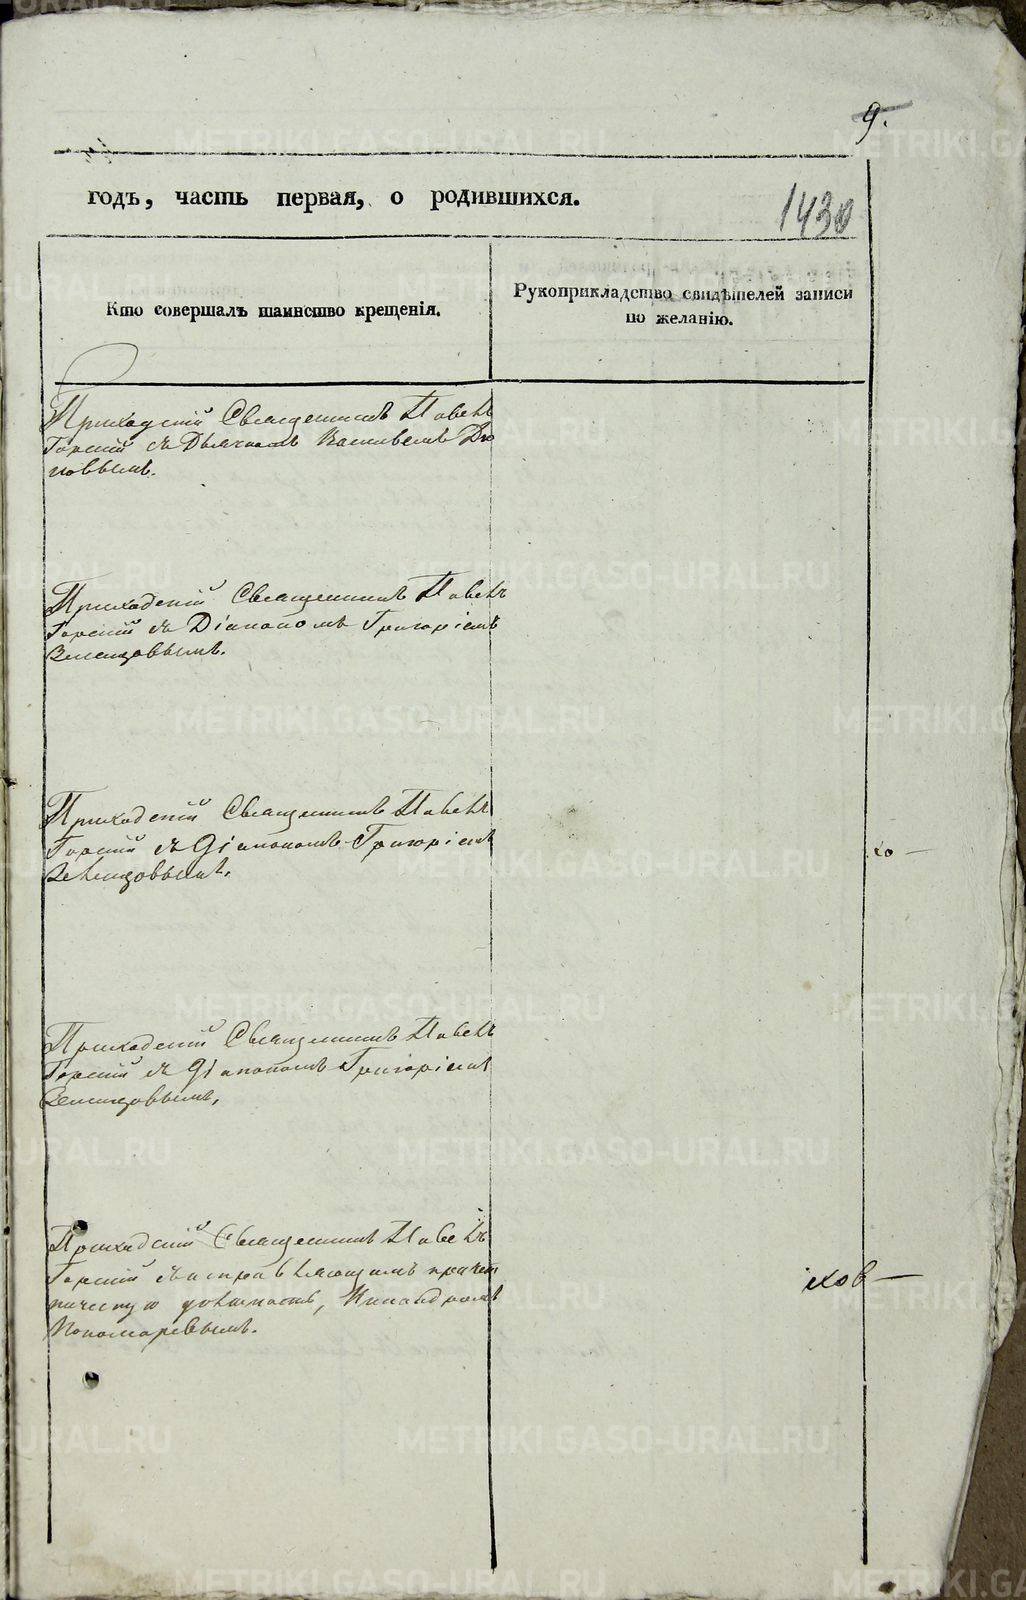 9.
годъ, часть первая, о родившихся.
1430
Кто совершалъ таинство крещенія.
Рукоприкладство свидѣтелей записи
по желанію.
Приходскій Священникъ Павелъ
Горскій съ Дьячкомъ
повымъ.
Приходскій Священникъ Павелъ
Горскій съ Діакономъ Григоріемъ
Земляновымъ.
Приходскій Священникъ Павелъ
Горскій съ Діакономъ Григоріемъ
хо —
Приходскій Священникъ Павелъ
Горскій съ Діакономъ Григоріемъ
Приходскій Священникъ Павелъ
Горскій съ исправляющимъ причет
ническую должность, Никандромъ
Пономаревымъ.
ихов —
METRIKI.GASO-URAL.RU